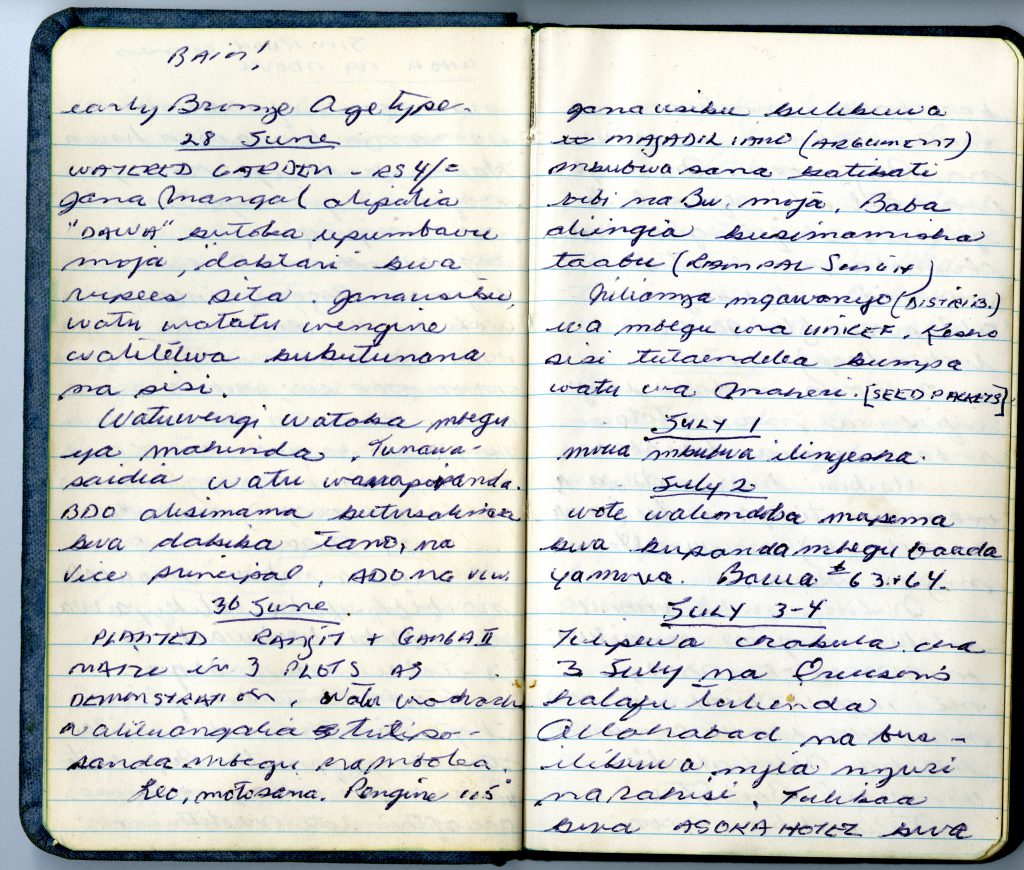 RAIN!
early Bronze Age type.
28 June
WATERED GARDEN - RS 4/=
Jana Mangal alipatia
"DAWA" kutoka upumbavu
moja, "daktari" kwa
rupees sita. Jana usiku,
watu watatu wengine
walitelwa kukutunana
na sisi.
Watu wengi watoka mbegu
ya mahinda. Tunawa-
saidia watu wanapopanda.
BDO alisimama kutusalimia
kwa dakika tano, na
Vice principal, ADO na VLW.
30 June.
PLANTED RANJIT + GANGA II
MAIZE in 3 PLOTS AS
DEMONSTRATION. Watu wachache
waliwangalia tulipo-
sanda mbegu na mbolea.
Leo, moto sana. Pengine 115°
jana usiku kulikuwa
MAJADILIANO (ARGUMENT)
mkubwa sana katikati
bibi na Bw. moja. Baba
aliingia kusimamisha
taabu (RAMPAL SINGH)
Nilianza mgawanyo (DISTRIB.)
wa mbegu wa UNICEF. Kesho
sisi tutaendelea kumpa
watu wa Maheri. [SEED PACKETS]
JULY 1
mvua mkubwa ilinyesha.
July 2
wote waliondoka mapema
kwa kupanda mbegu baada
ya mvua. Barua # 63 + 64.
JULY 3-4
Tulipewa chakula cha
3 July na
halafu tukenda
Allahabad na bus -
ilikuwa njia nzuri
na rahisi. Tulikaa
kwa ASOKA HOTEL kwa